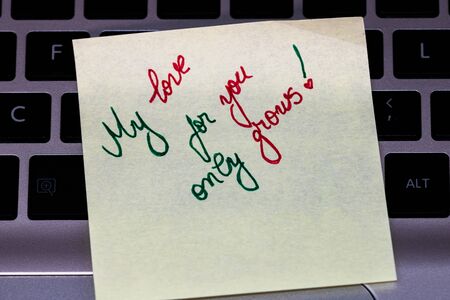 F
L
C
ALT
My love
for you
only grows!